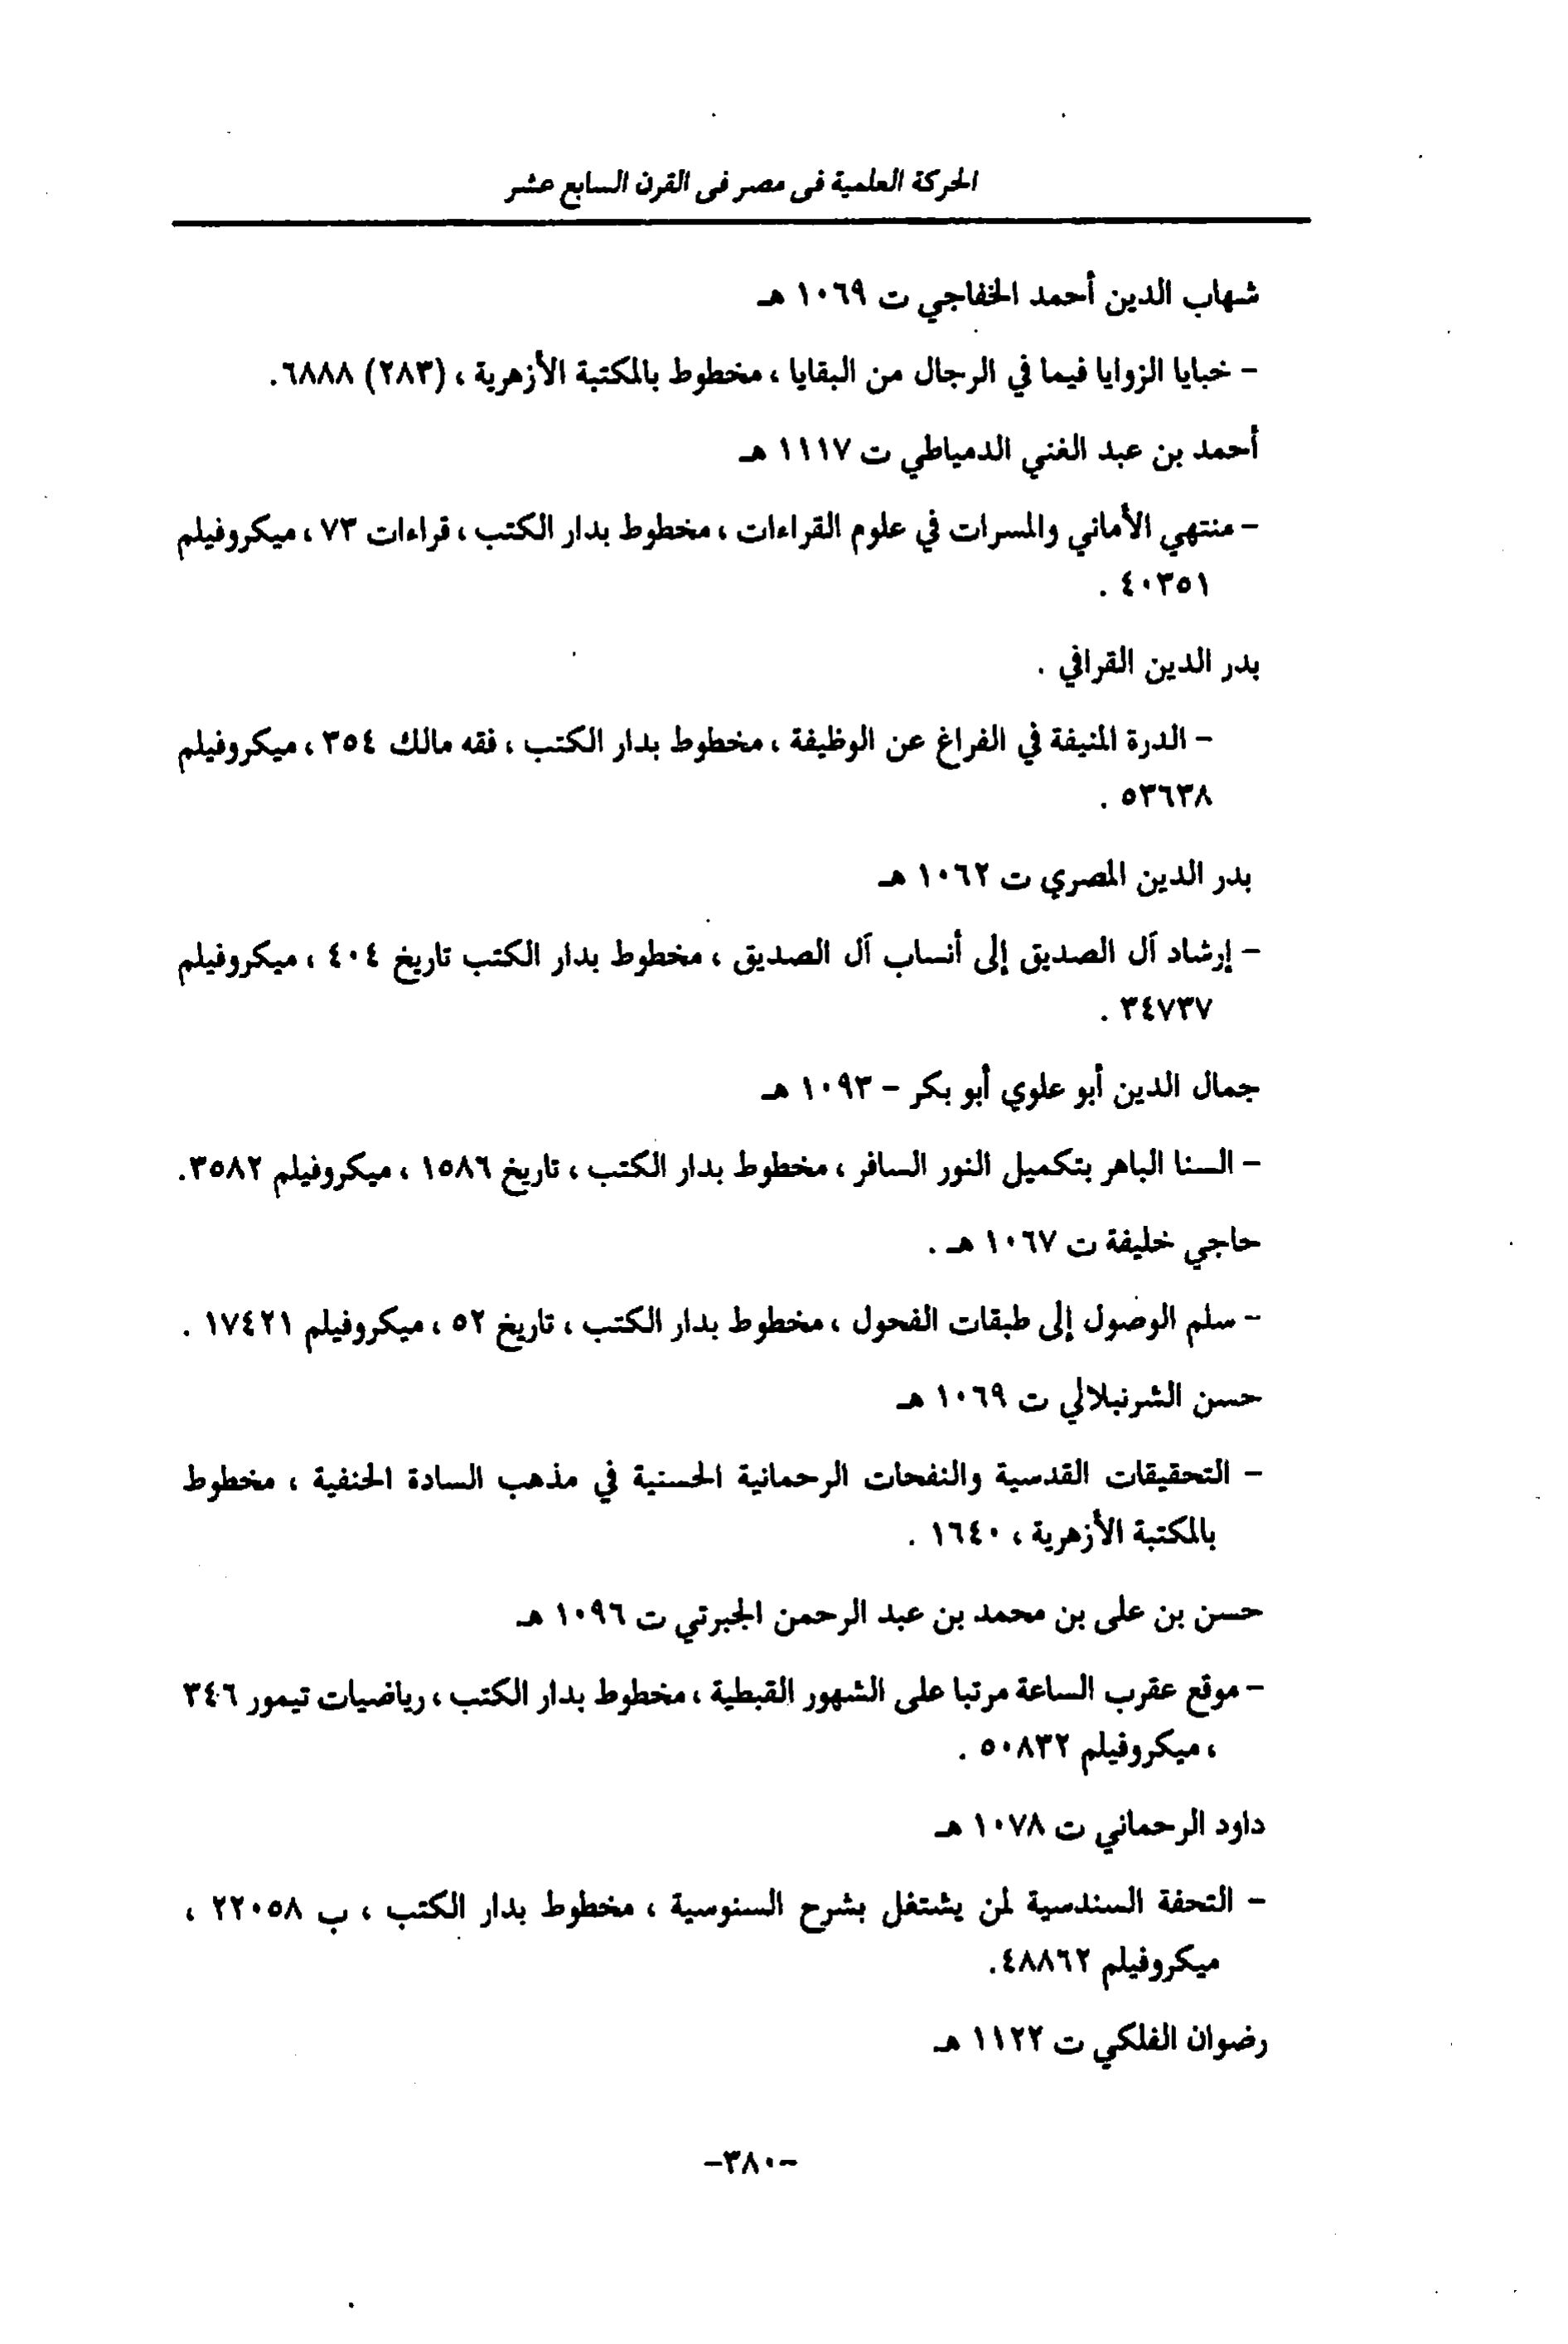 الحركة العلمية فى مصر فى القرن السابع عشر
شهاب الدين أحمد الخفاجي ت ١٠٦٩ هـ
- خبايا الزوايا فيما في الرجال من البقايا ، مخطوط بالمكتبة الأزهرية ، (٢٨٣) ٦٨٨٨.
أحمد بن عبد الغني الدمياطي ت ١١١٧ هـ
- منتهي الأماني والمسرات في علوم القراءات ، مخطوط بدار الكتب ، قراءات ٧٣ ، ميكروفيلم
٤٠٣٥١ .
بدر الدين القرافي .
- الدرة المنيفة في الفراغ عن الوظيفة ، مخطوط بدار الكتب ، فقه مالك ٣٥٤ ، ميكروفيلم
٥٣٦٣٨ .
بدر الدين المصري ت ١٠٦٢ هـ
- إرشاد آل الصديق إلى أنساب آل الصديق ، مخطوط بدار الكتب تاريخ ٤٠٤ ، ميكروفيلم
٣٤٧٣٧ .
جمال الدين أبو علوي أبو بكر - ١٠٩٣ هـ
- السنا الباهر بتكميل النور السافر ، مخطوط بدار الكتب ، تاريخ ١٥٨٦ ، ميكروفيلم ٣٥٨٢.
حاجي خليفة ت ١٠٦٧ هـ .
- سلم الوصول إلى طبقات الفحول ، مخطوط بدار الكتب ، تاريخ ٥٢ ، ميكروفيلم ١٧٤٢١ .
حسن الشرنبلالي ت ١٠٦٩ هـ
- التحقيقات القدسية والنفحات الرحمانية الحسنية في مذهب السادة الحنفية ، مخطوط
بالمكتبة الأزهرية ، ١٦٤٠ .
حسن بن على بن محمد بن عبد الرحمن الجبرتي ت ١٠٩٦ هـ
- موقع عقرب الساعة مرتبا على الشهور القبطية ، مخطوط بدار الكتب ، رياضيات تيمور ٣٤٦
، ميكروفيلم ٥٠٨٣٢ .
داود الرحماني ت ١٠٧٨ هـ
- التحفة السندسية لمن يشتغل بشرح السنوسية ، مخطوط بدار الكتب ، ب ٢٢٠٥٨ ،
ميكروفيلم ٤٨٨٦٢.
رضوان الفلكي ت ١١٢٢ هـ
-٣٨٠-